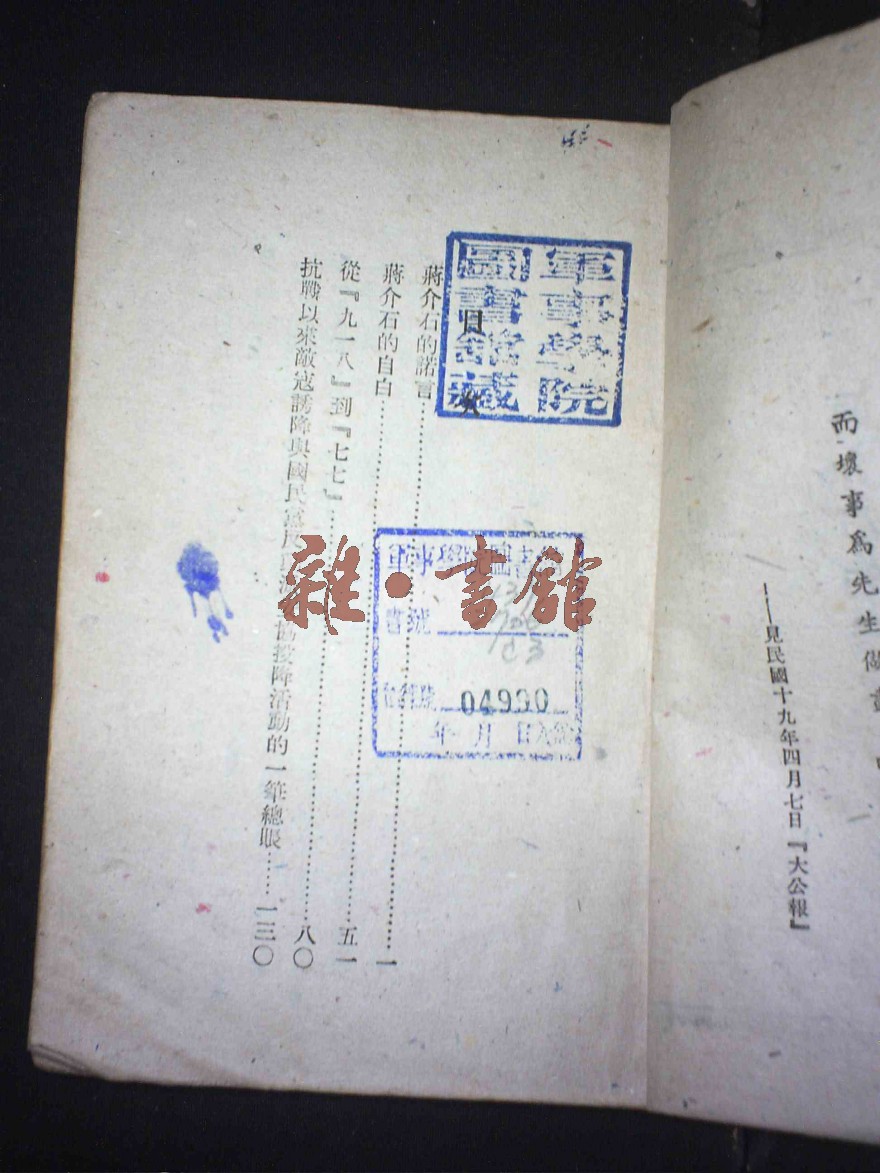 而壞事為先生做盡
——見民國十九年四月七日『大公報』
軍事學院
圖書館藏
目次
蔣介石的諾言……一
蔣介石的自白……五一
從『九一八』到『七七』……八〇
抗戰以來敵寇誘降與國民黨反派協投降活動的一筆總賬……一三〇
軍事學院圖書館
書號
04990
年 月 日
雜·書館